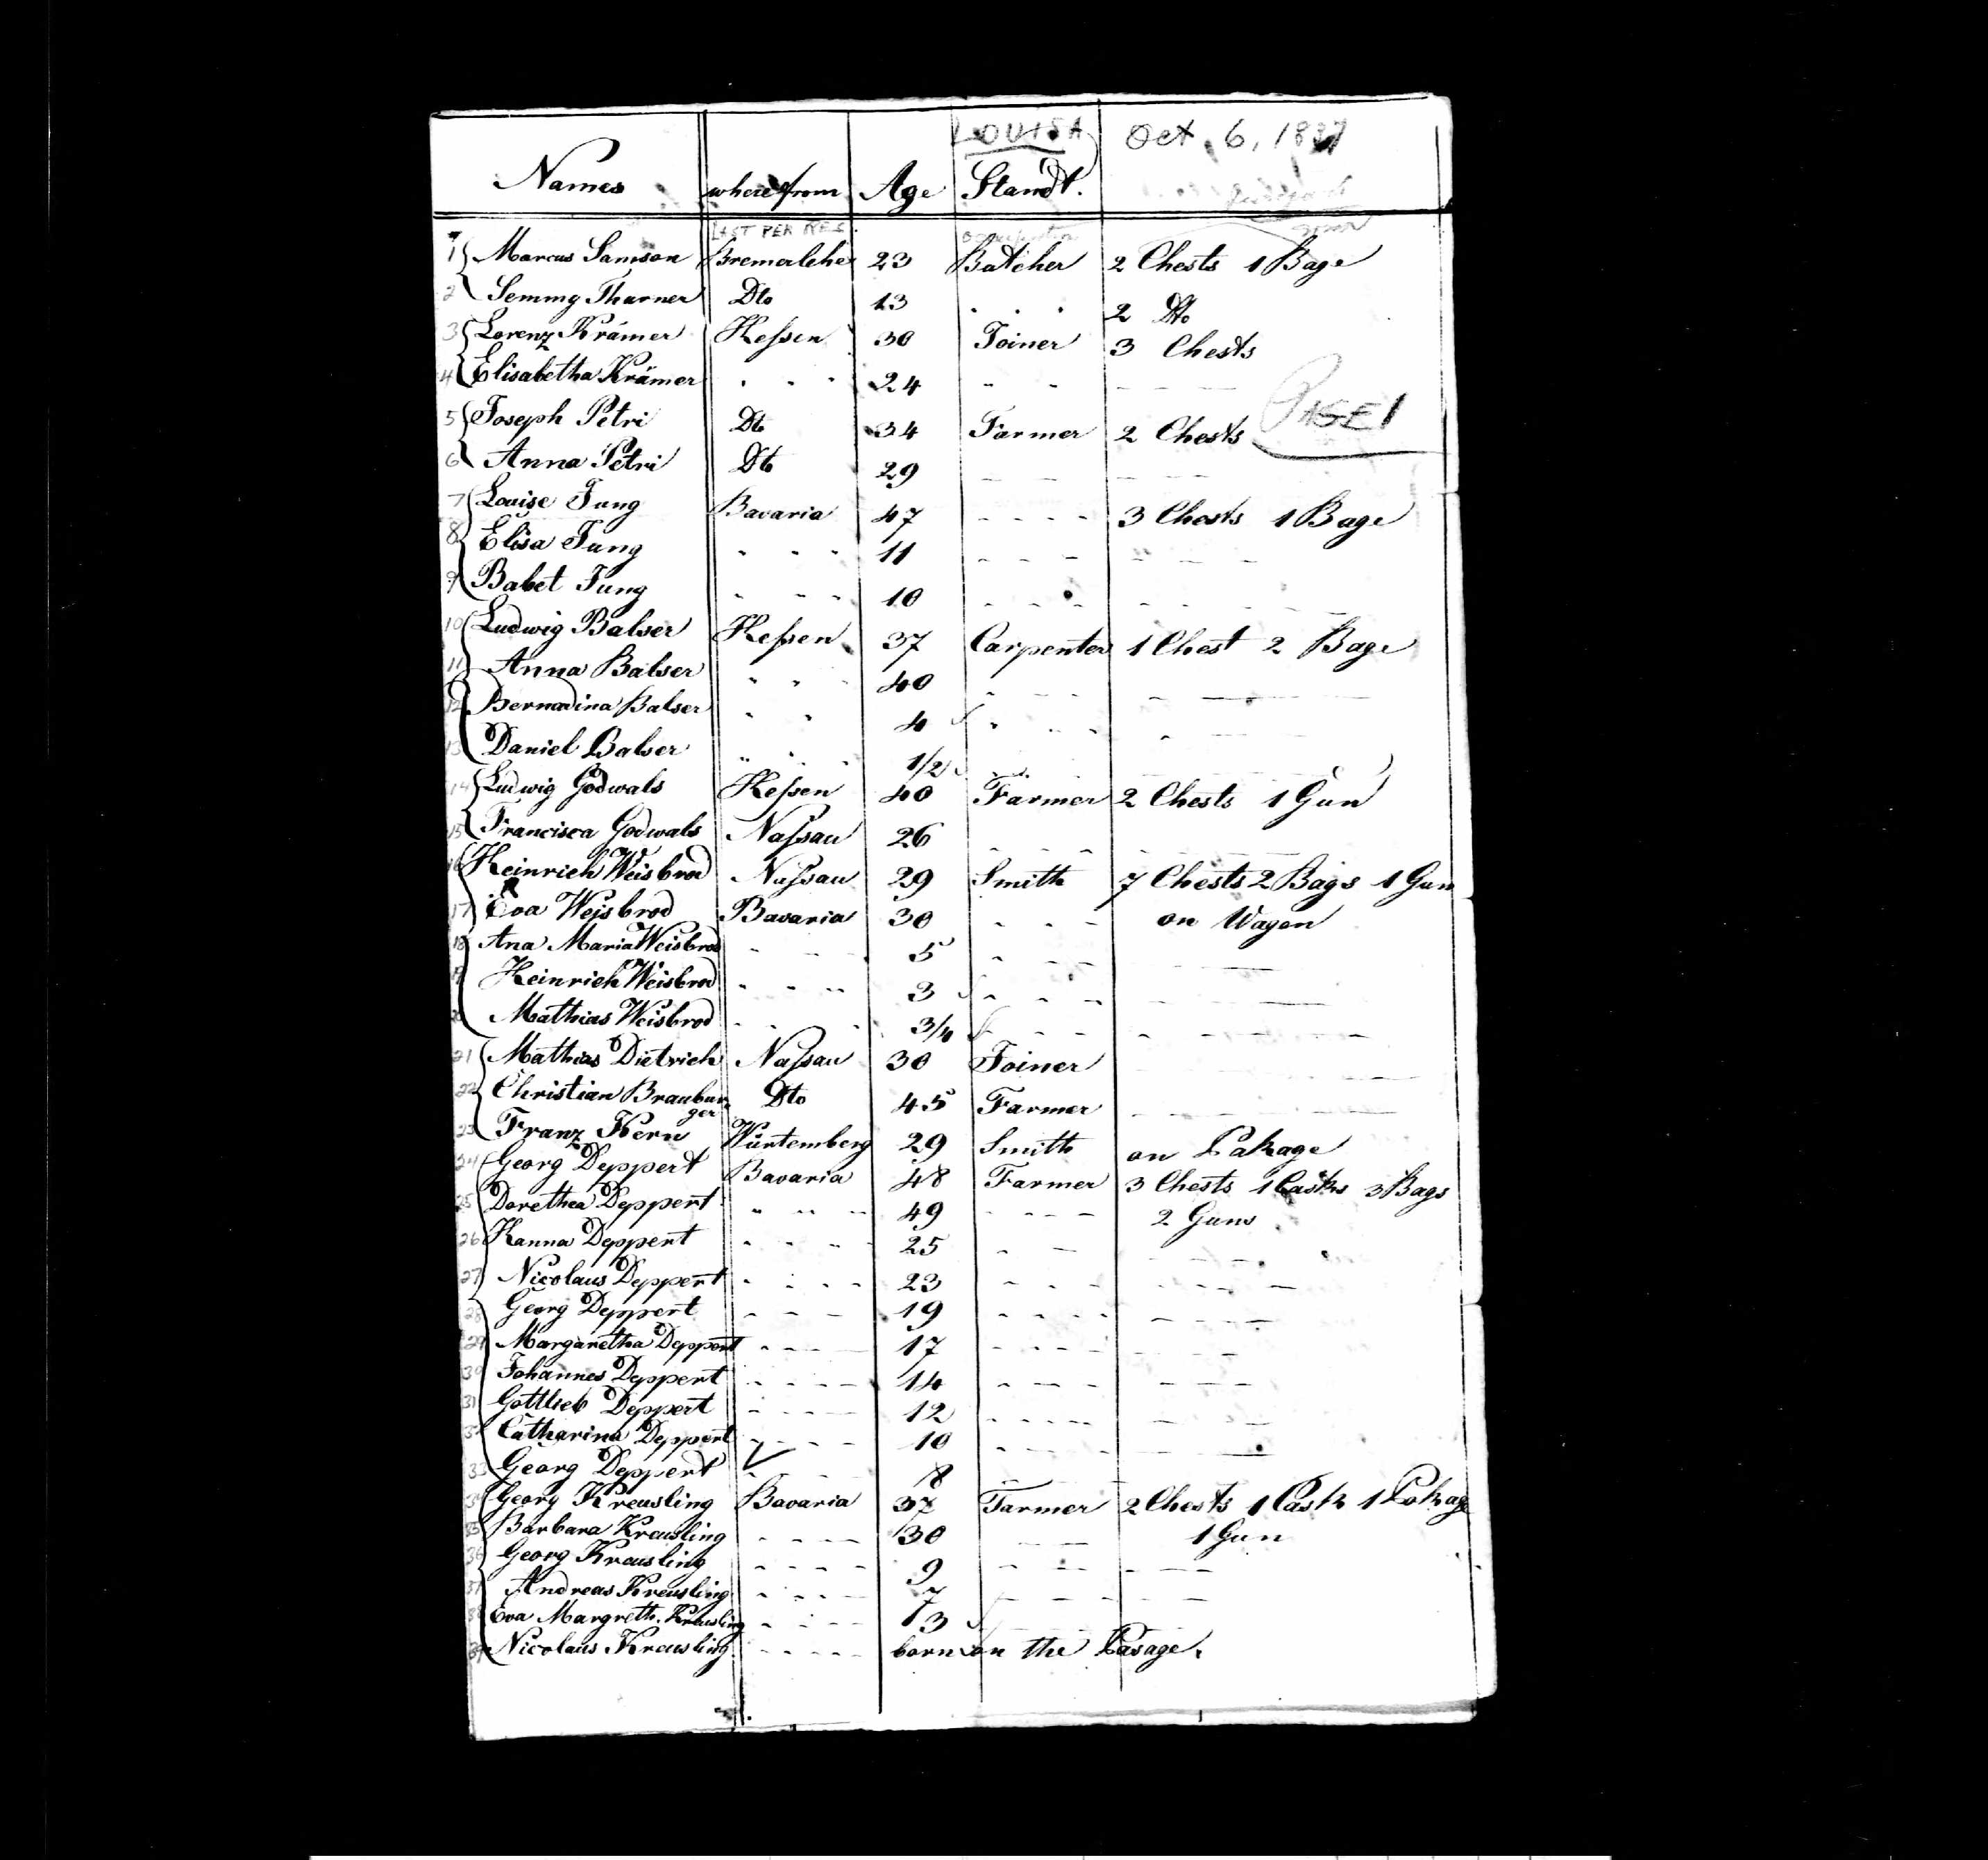 LOUISA Oct. 6, 1837
Names where from Age Standt.
LAST PER RES. occupation
1 Marcus Samson Bremerlehe 23 Butcher 2 Chests 1 Bage
2 Semmy Tharner Dto 13 2 Dto
3 Lorenz Krämer Heſsen 30 Joiner 3 Chests
4 Elisabetha Krämer " " " 24 " " - - -
PAGE 1
5 Joseph Petri Dto 34 Farmer 2 Chests
6 Anna Petri Dto 29 - - - - -
7 Louise Jung Bavaria 47 - - - - 3 Chests 1 Bage
8 Elisa Jung " " " 11 - - - - - -
9 Babet Jung " " " 10 - - - - - -
10 Ludwig Balser Heſsen 37 Carpenter 1 Chest 2 Bage
11 Anna Balser " " " 40 - - - - - -
12 Bernadina Balser " " 4 " - - - -
13 Daniel Balser " " " 1/2
14 Ludwig Godwals Heſsen 40 Farmer 2 Chests 1 Gun
15 Francisca Godwals Naſsau 26 - - - - - -
16 Heinrich Weisbrod Naſsau 29 Smith 7 Chests 2 Bags 1 Gun
17 Eva Weisbrod Bavaria 30 - - - on Wagen
18 Ana Maria Weisbrod - - - 5 - - - - -
19 Heinrich Weisbrod - - - 3 - - - - -
20 Mathias Weisbrod - - - 3/4 - - - - -
21 Mathias Dietrich Naſsau 30 Joiner - - -
22 Christian Braubur Dto 45 Farmer - - -
ger
23 Franz Kern Würtemberg 29 Smith on Pakage
24 Georg Deppert Bavaria 48 Farmer 3 Chests 1 Casks 3 Bags
25 Dorethea Deppert " " " 49 - - - - 2 Guns
26 Hanna Deppert - - - - 25 - - - - -
27 Nicolaus Deppert - - - - 23 - - - - - - -
28 Georg Deppert - - - 19 - - - - - - -
29 Margaretha Deppert - - - - 17 - - - - - - -
30 Johannes Deppert - - - - 14 - - - - - - -
31 Gottlieb Deppert - - - - 12 - - - - - -
32 Catharina Deppert - - - - 10 - - - - - -
33 Georg Deppert - - - 8 - - - -
34 Georg Kreusling Bavaria 37 Farmer 2 Chests 1 Cask 1 Pokage
35 Barbara Kreusling - - - - 30 - - 1 Gun
36 Georg Kreusling - - - - 9 - - - - - -
37 Andreas Kreusling - - - - 7 - - - - - -
38 Eva Margreth. Kreusling - - - - 3
39 Nicolaus Kreusling - - - - - born on the Pasage.